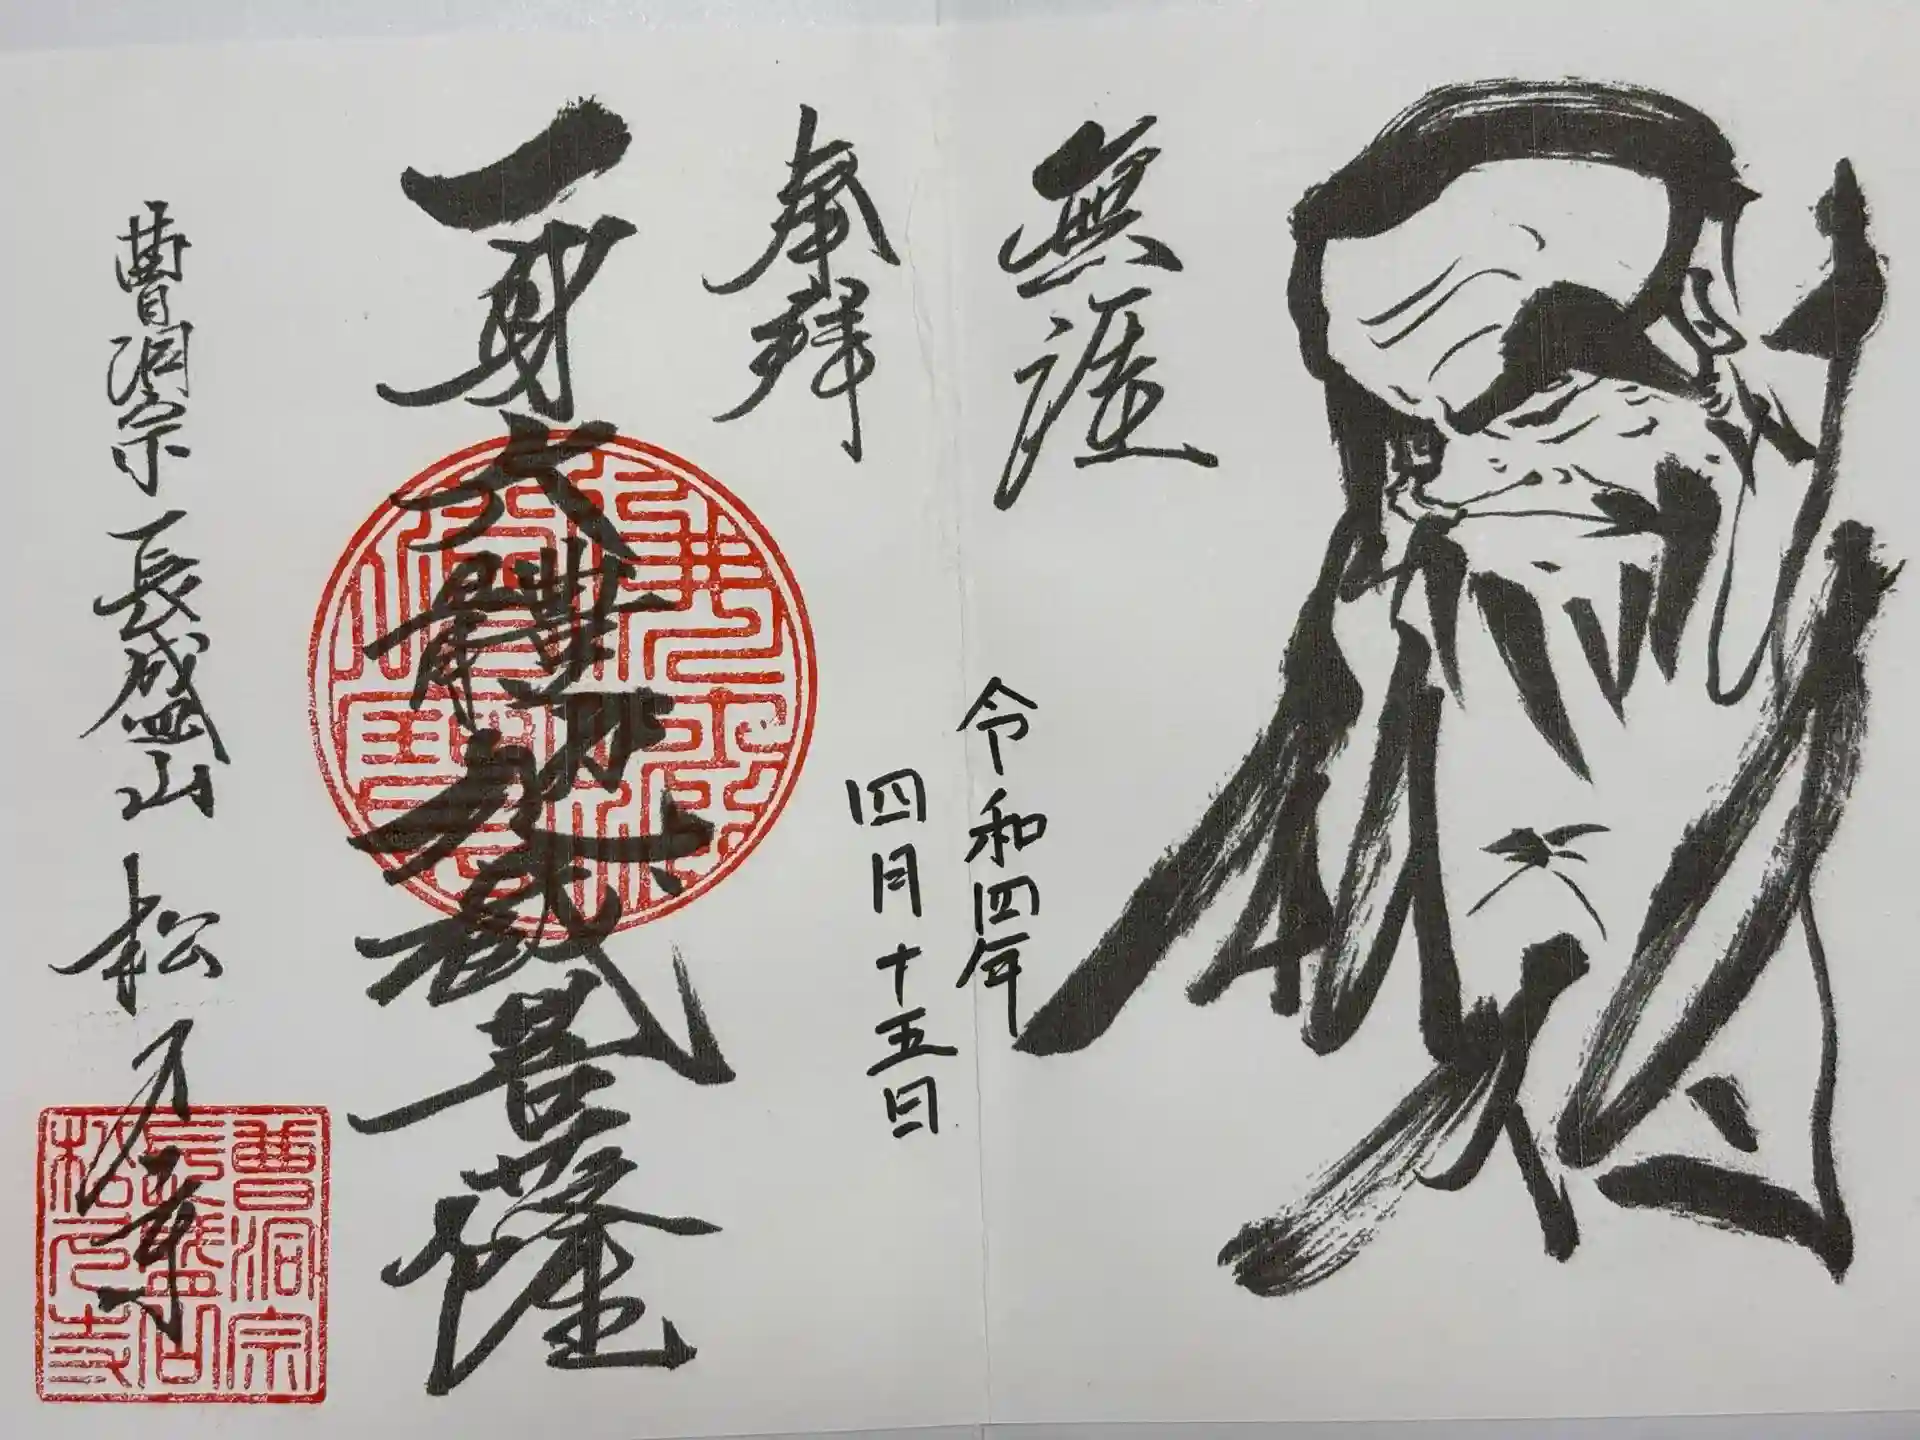 無涯
奉拝
令和四年
四月十五日
一身六體地蔵菩薩
曹洞宗 長盛山
曹洞宗
長盛山